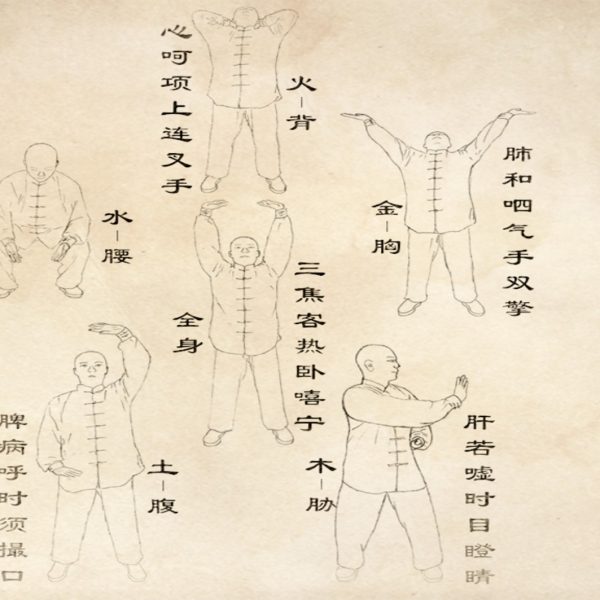 心呵项上连叉手
火-背
肺和呬气手双擎
金-胸
水-腰
三焦客热卧嘻宁
全身
肝若嘘时目瞪睛
木-胁
土-腹
脾病呼时须撮口